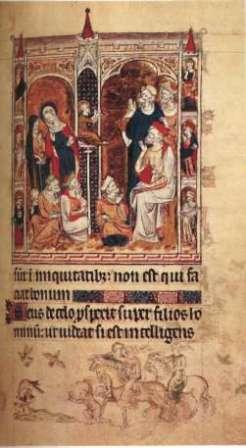 sūt ī iniquitatibꝫ: non est qui fa
ciat bonum
Deus de celo ꝓspexit super filios ho
minū: ut videat si est intelligens